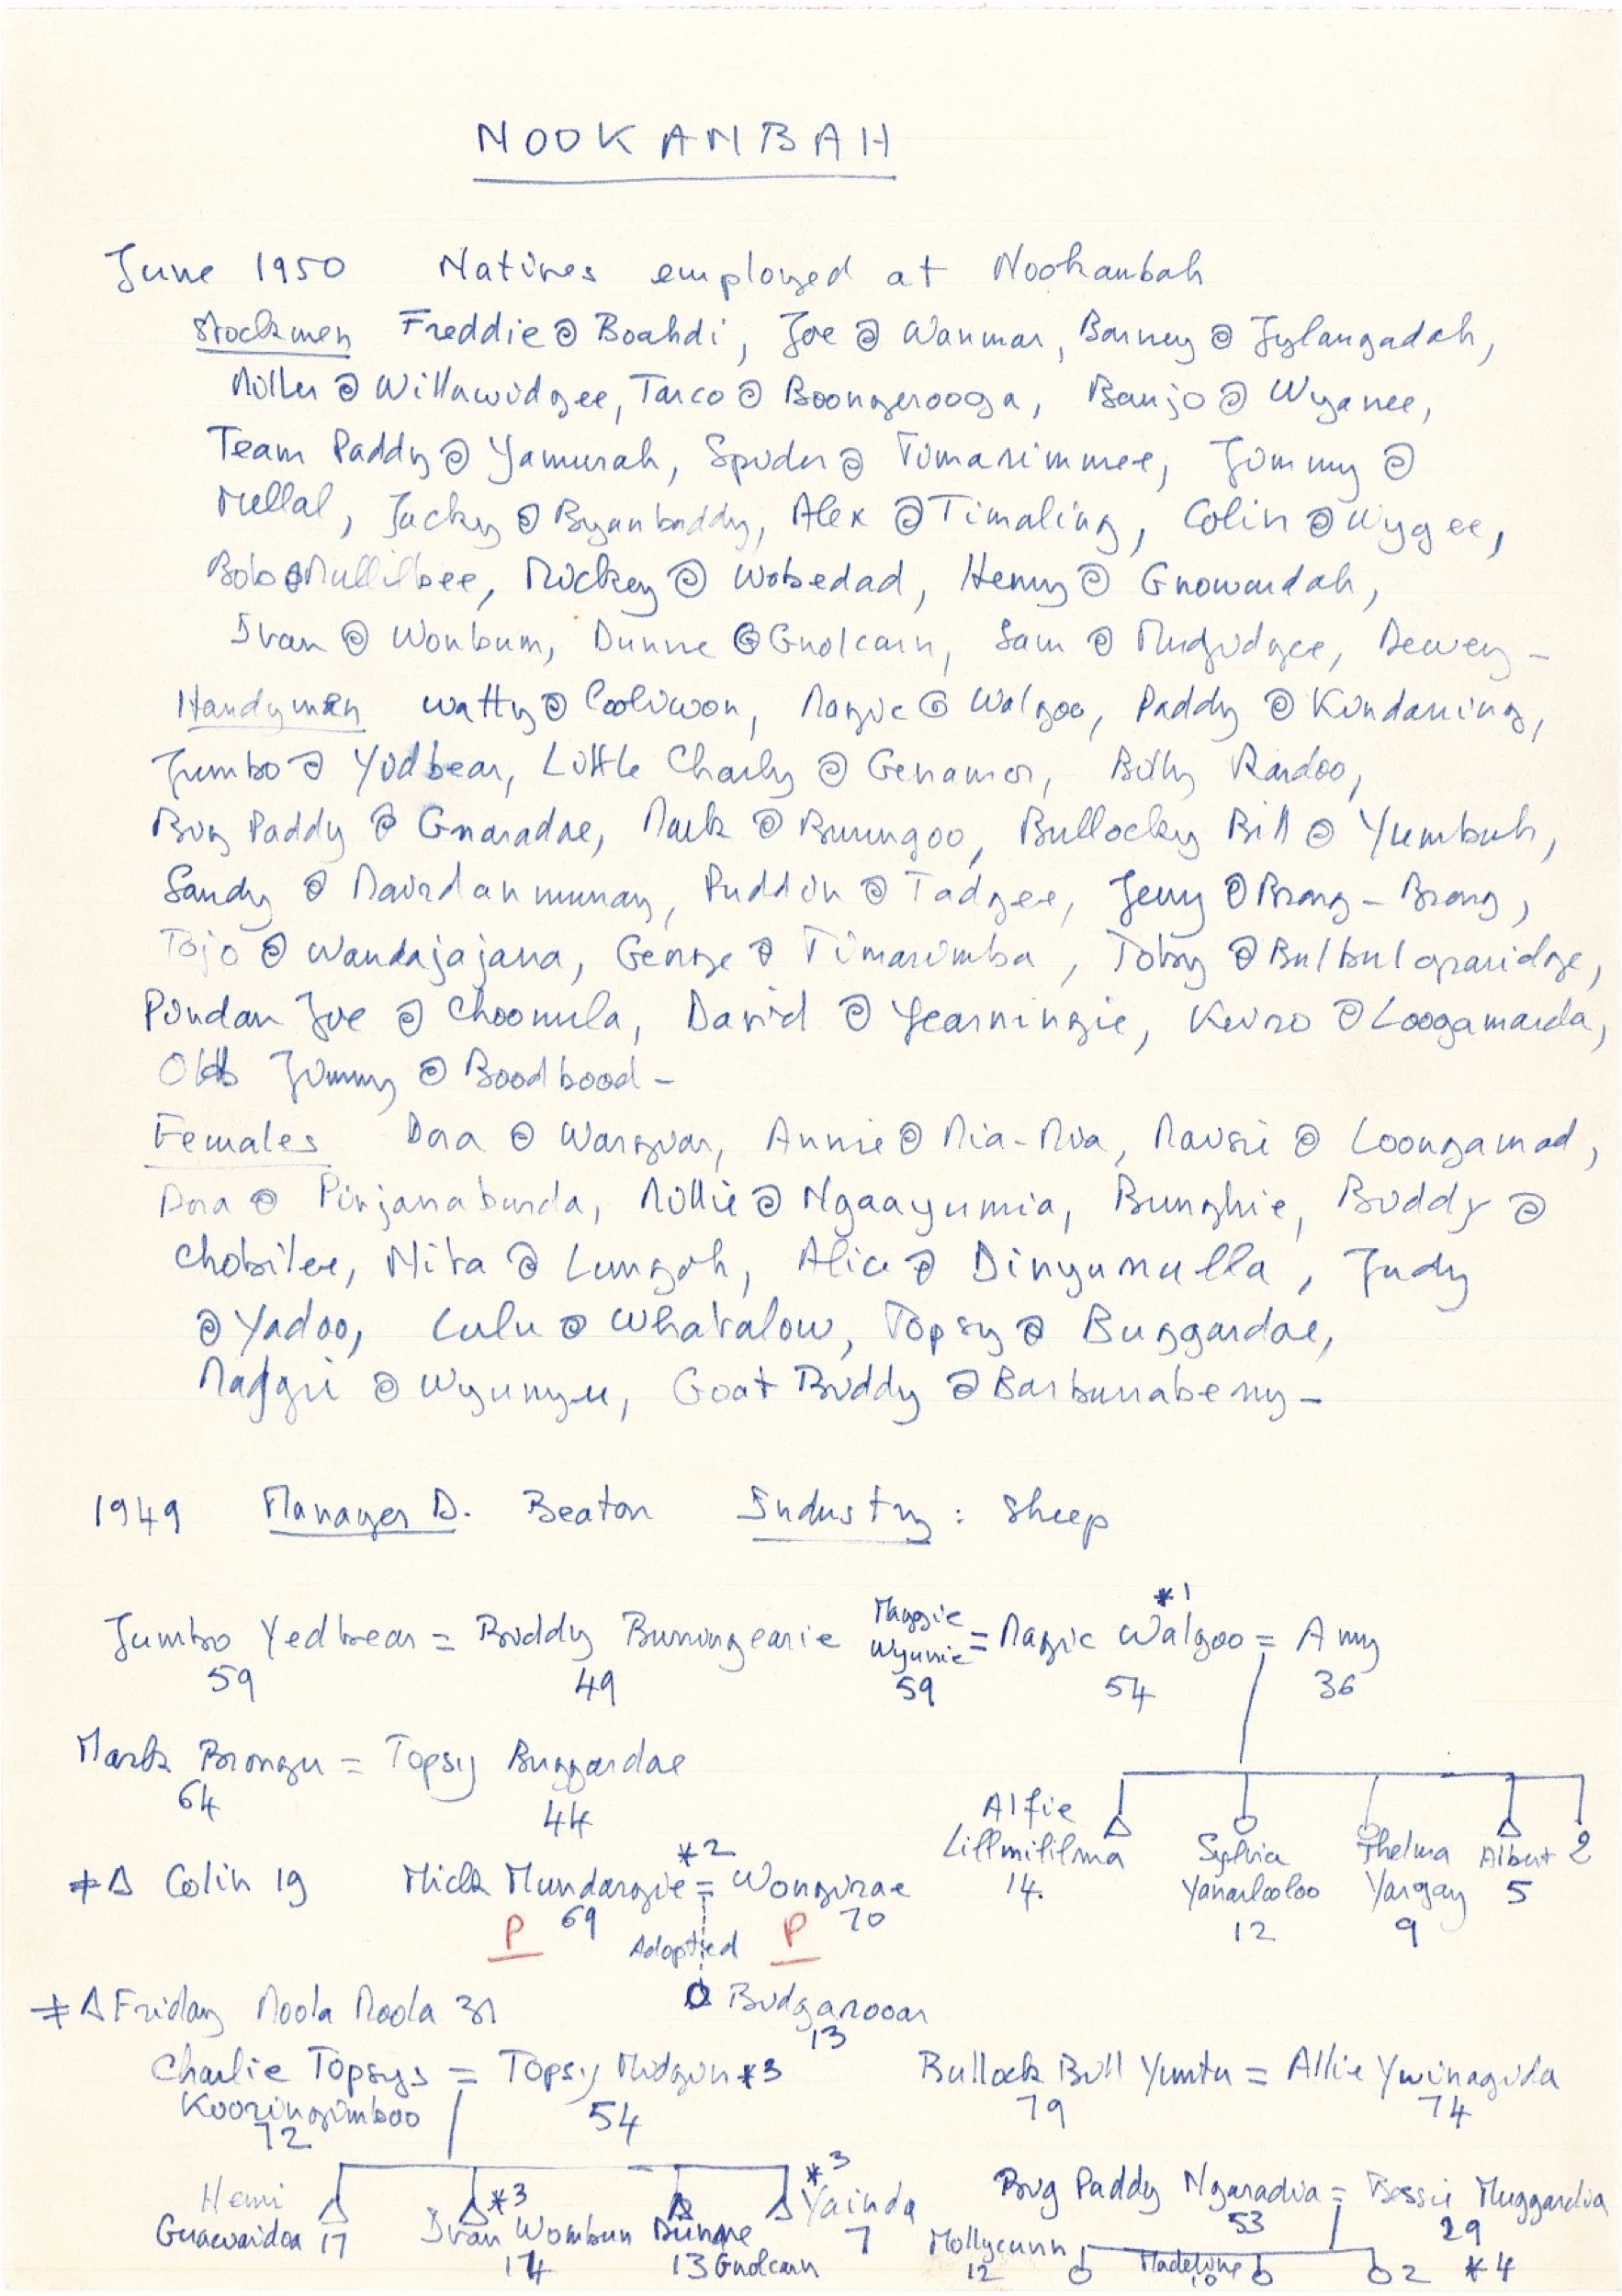 NOOKAMBAH
June 1950 Natives employed at Nookanbah
Stockmen Freddie @ Boahdi, Joe @ Wanmar, Barney @ Jylangadah,
Miller @ Willawidgee, Tarco @ Boongerooga, Banjo @ Wyanee,
Team Paddy @ Yamurah, Spider @ Timarimmee, Jimmy @
Mellal, Jacky @ Byanbaddy, Alex @ Timaling, Colin @ Wygee,
Bob @ Mullilbee, Mickey @ Wobedad, Henry @ Gnowardah,
Ivan @ Wonbum, Dunne @ Gnolcarn, Sam @ Mudjidgee, Dewey -
Handymen Watty @ Cooliwon, Magic @ Walgoo, Paddy @ Kindarring,
Jumbo @ Yidbear, Little Charly @ Genamor, Billy Rardoo,
Big Paddy @ Gnaradae, Mark @ Burungoo, Bullocky Bill @ Yumbuh,
Sandy @ Mairdanmurray, Puddin @ Tadgee, Jerry @ Brong-Brong,
Tojo @ Wandajajana, George @ Timarimba, Toby @ Bulbulgparidge,
Pindan Joe @ Choomula, David @ Yearningie, Keiro @ Loogamarda,
Old Jimmy @ Boodbood -
Females Dora @ Wargvar, Annie @ Mia-Mia, Maisie @ Loongamad,
Dora @ Pinjanaburda, Millie @ Ngaayumia, Bunghie, Biddy @
Chobilee, Nita @ Lungoh, Alice @ Dingumulla, Judy
@ Yadoo, Lulu @ Whatalow, Topsy @ Buggardae,
Maggie @ Wyunyu, Goat Biddy @ Barbunaberry -
1949 Manager D. Beaton Industry: Sheep
Jumbo Yedbear = Biddy Burringearie Maggie Wyunie = Magic Walgoo *1 = Amy
59 49 59 54 36
Mark Brongu = Topsy Buggardae
64 44
Alfie Lillmililma 14. Sylvia Yanarlooloo 12 Thelma Yargay 9 Albert 5 2
≠ Δ Colin 19 Mick Mundargie *2 = Wongirae
P 69 Adopted P 70
≠ Δ Friday Moola Moola 31 Bidgarooar
13
Charlie Topsys = Topsy Midgin *3 Bullock Bill Yumtu = Allie Ywinagida
Kooringimboo 72 54 79 74
Henri Gnawaidoa 17 *3 Ivan Wombun 14 Dunne 13 Gnolcarn *3 Yainda 7
Big Paddy Ngaradia = Bessie Muggardia
53 29
Mollycunn 12 Madeline 10 2 *4